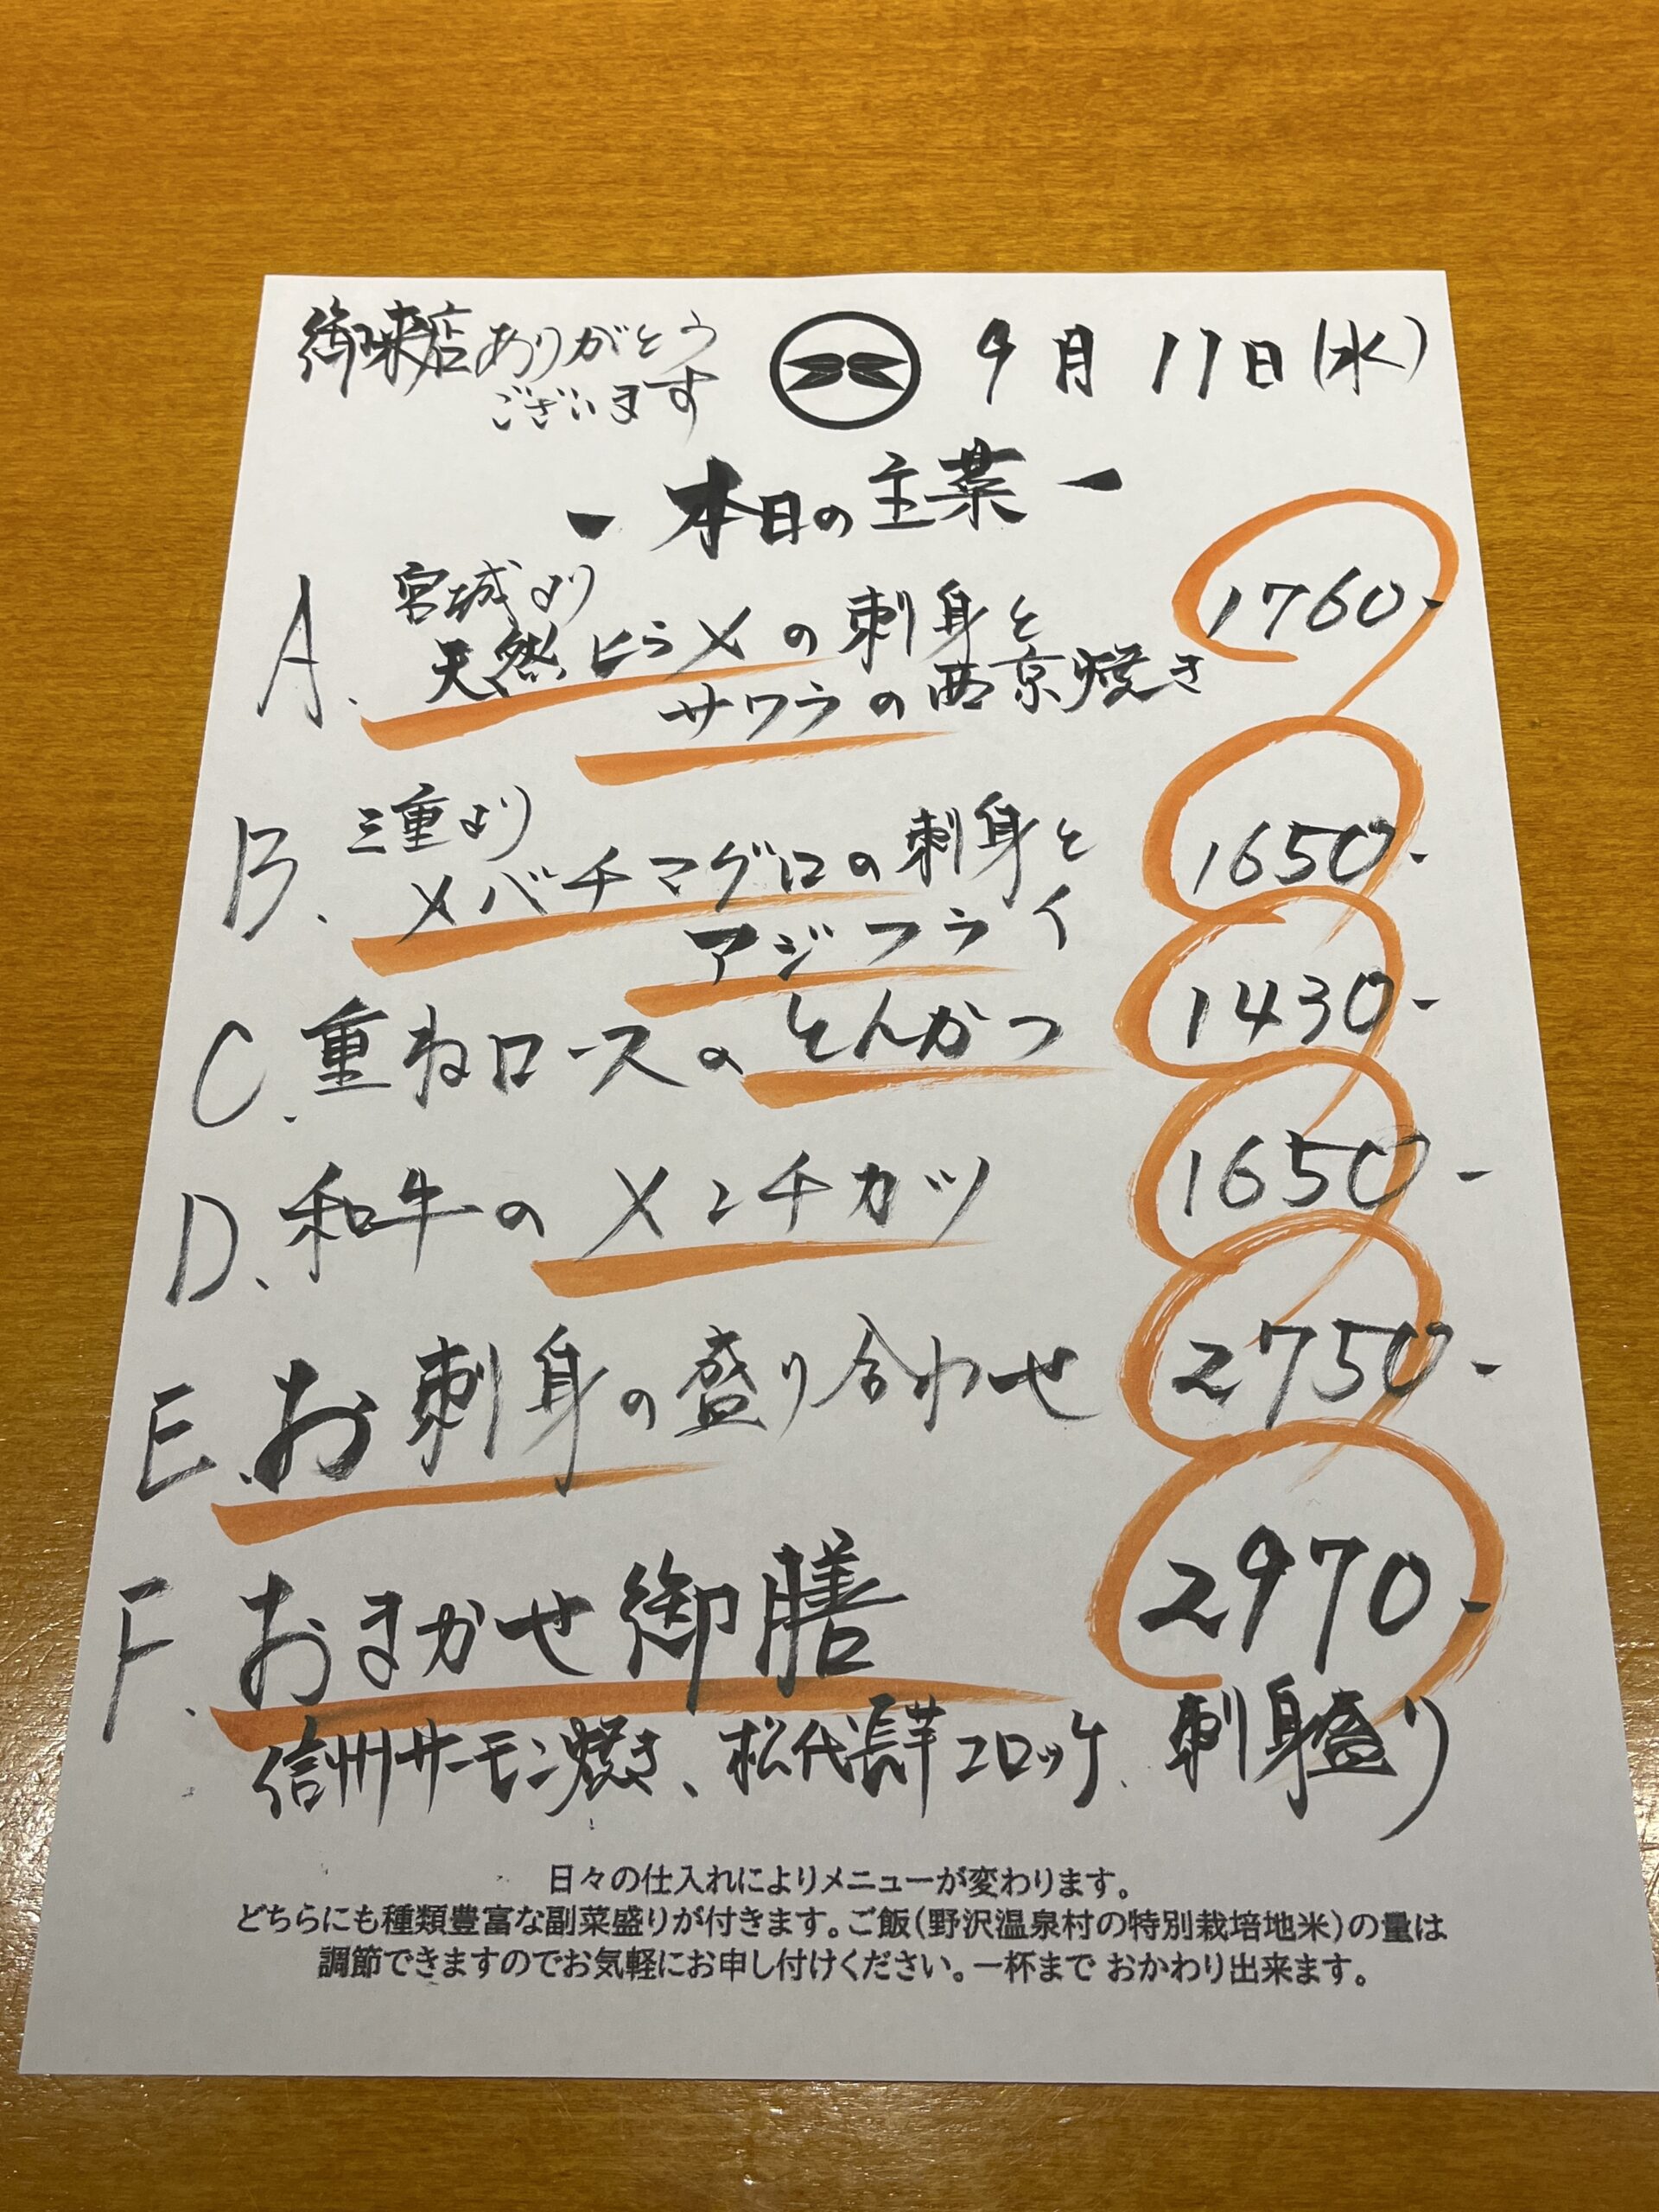 御来店ありがとう
ございます
9月11日(水)
- 本日の主菜 -
A. 宮城より
天然ヒラメの刺身と
サワラの西京焼き
1760-
B. 三重より
メバチマグロの刺身と
アジフライ
1650-
C. 重ねロースのとんかつ 1430-
D. 和牛のメンチカツ 1650-
E. お刺身の盛り合わせ 2750-
F. おまかせ御膳 2970-
信州サーモン焼き、松代長芋コロッケ、刺身盛り
日々の仕入れによりメニューが変わります。
どちらにも種類豊富な副菜盛りが付きます。ご飯(野沢温泉村の特別栽培地米)の量は
調節できますのでお気軽にお申し付けください。一杯まで おかわり出来ます。